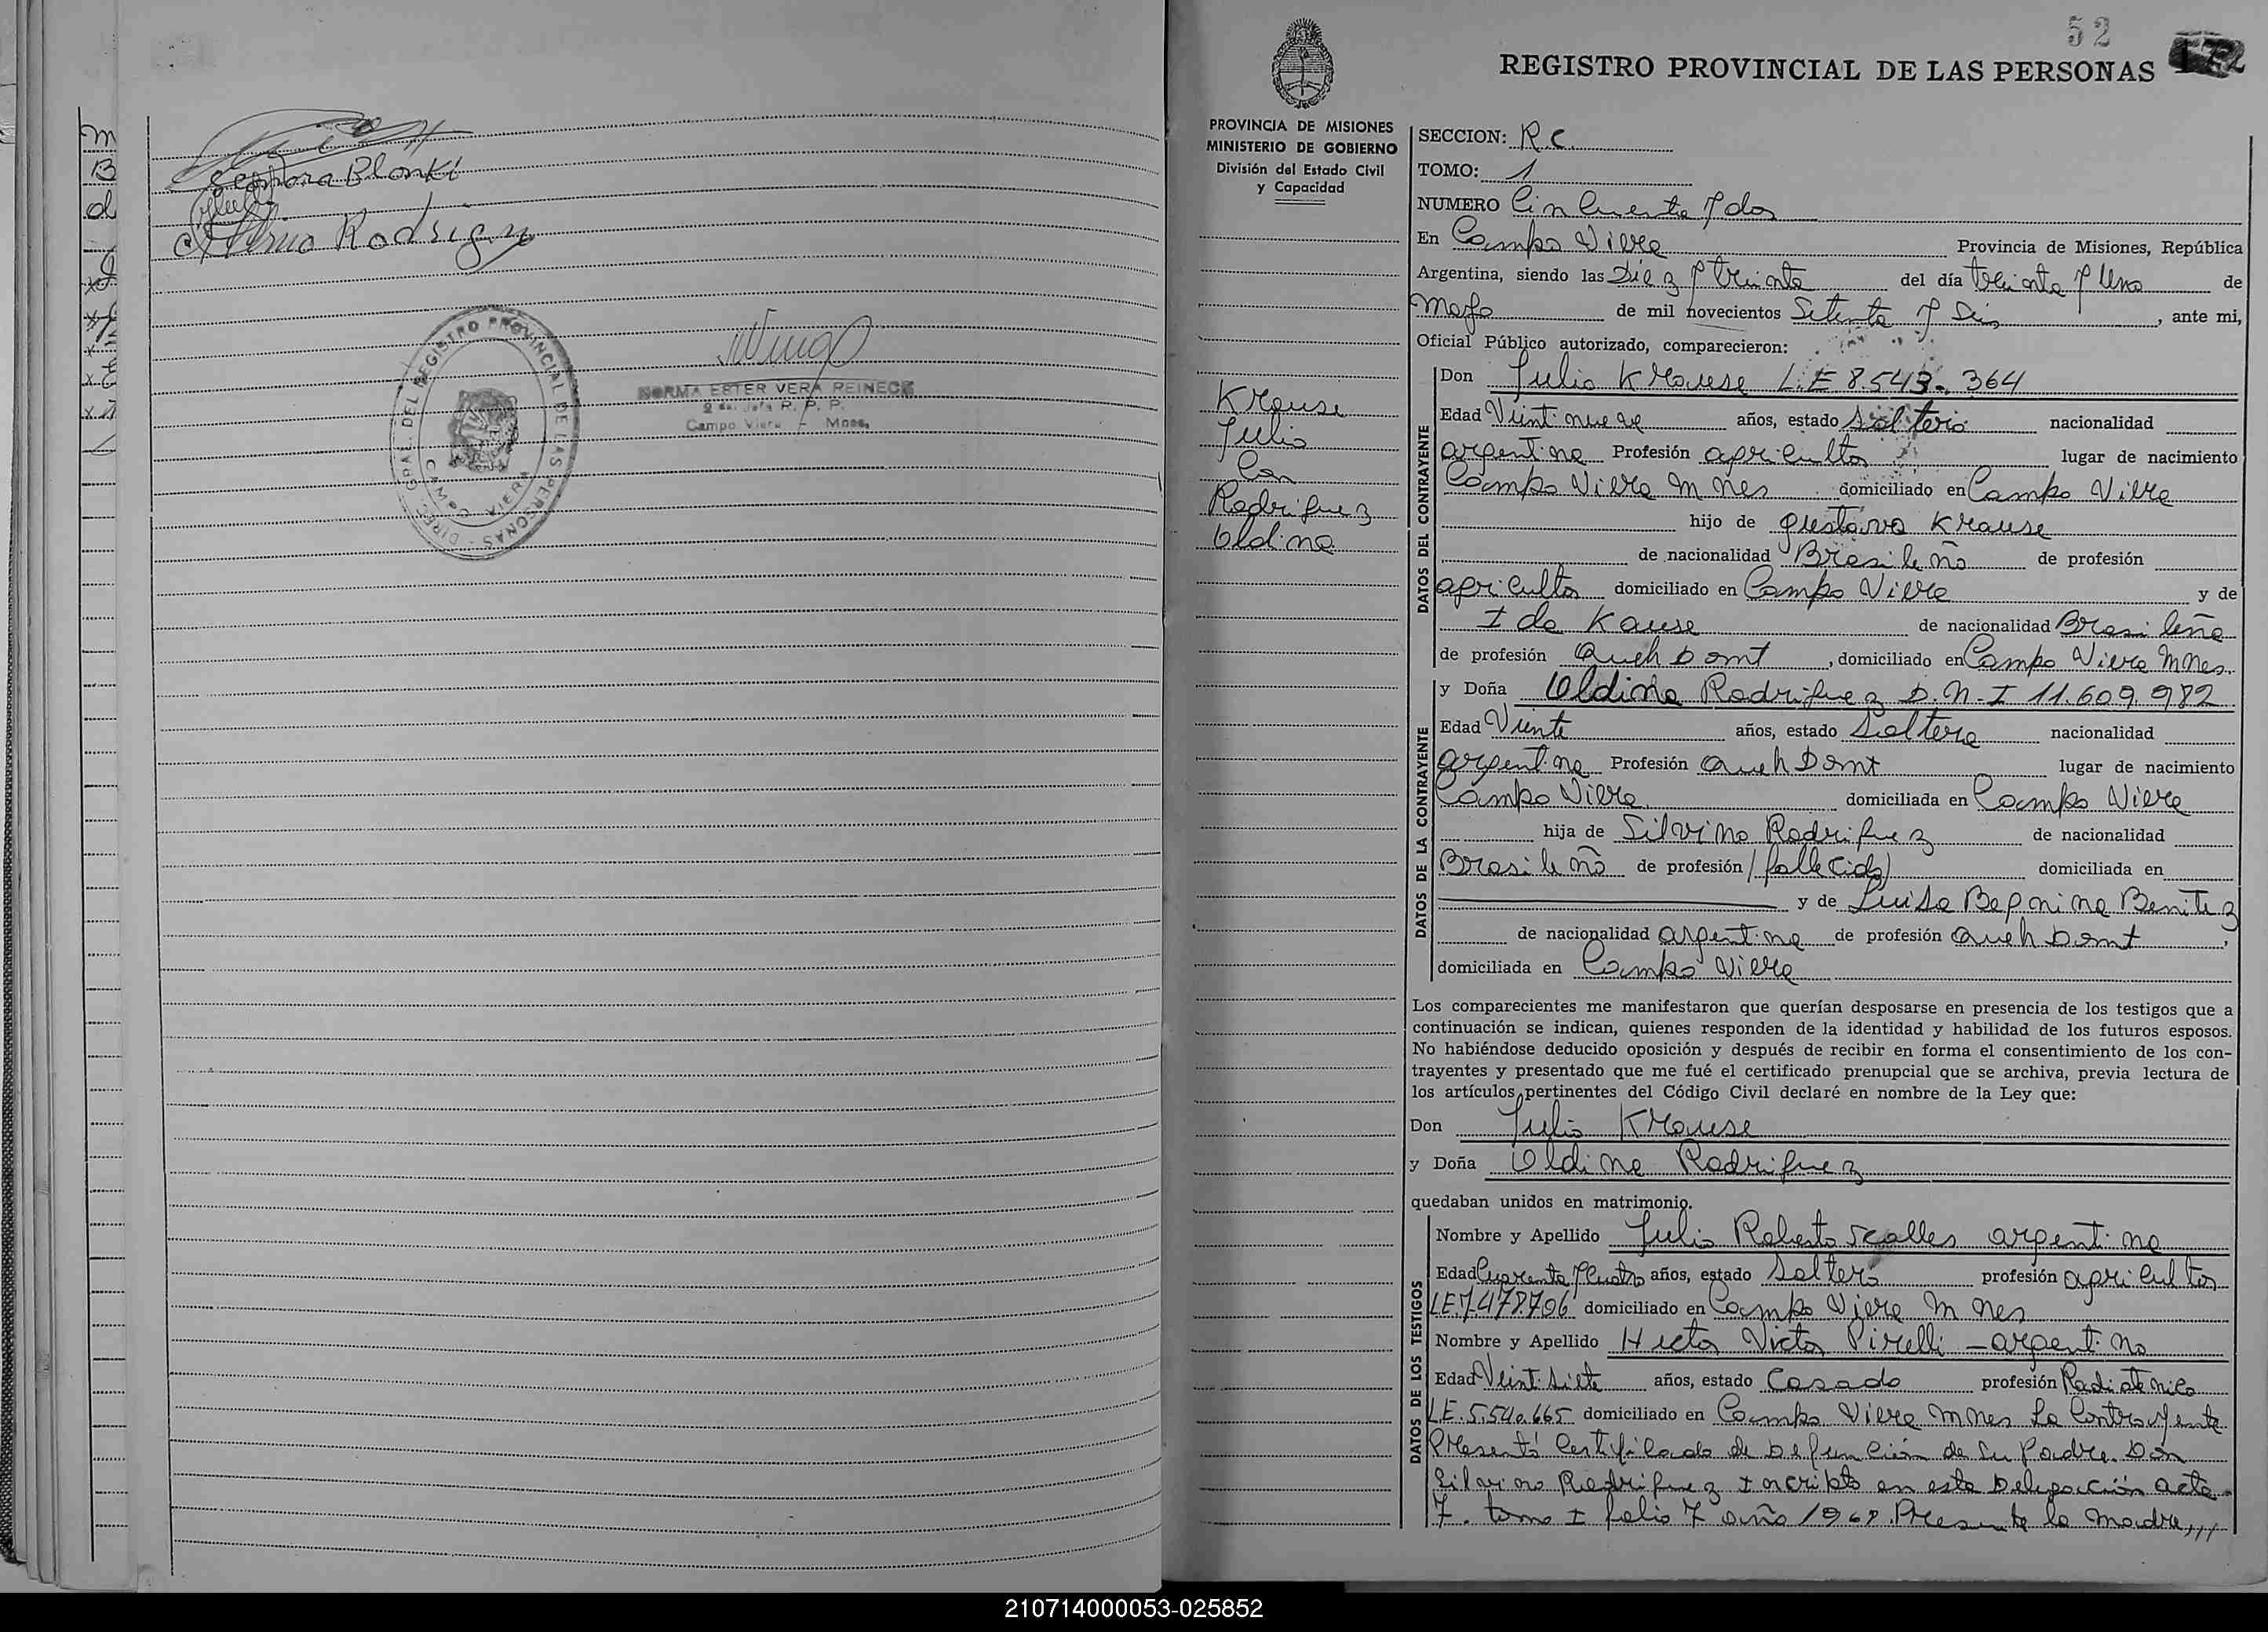 Leonora Blonki
Rodrigu
DIREC. GRAL. DEL REGISTRO PROVINCIAL DE LAS PERSONAS
CAMPO VIERA
NORMA ESTER VERA REINECK
R. P. P.
Campo Viera - Mnes.
m
B
d
52
REGISTRO PROVINCIAL DE LAS PERSONAS
PROVINCIA DE MISIONES
MINISTERIO DE GOBIERNO
División del Estado Civil
y Capacidad
Krause
Julio
Con
Rodriguez
Oldina
SECCION: R.C.
TOMO: 1
NUMERO Cincuenta y dos
En Campo Viera Provincia de Misiones, República
Argentina, siendo las Diez y treinta del día treinta y Uno de
Mayo de mil novecientos Setenta y Seis, ante mi,
Oficial Público autorizado, comparecieron:
DATOS DEL CONTRAYENTE
Don Julio Krause L.E 8.543.364
Edad Vientinueve años, estado Soltero nacionalidad
argentina Profesión agricultor lugar de nacimiento
Campo Viera Mnes domiciliado en Campo Viera
hijo de Gustavo Krause
de nacionalidad Brasileño de profesión
agricultor domiciliado en Campo Viera y de
Ida Kause de nacionalidad Brasileña
de profesión Queh Domt, domiciliado en Campo Viera Mnes.
DATOS DE LA CONTRAYENTE
y Doña Oldina Rodriguez D.N.I 11.609.982
Edad Viente años, estado Soltera nacionalidad
argentina Profesión Queh Domt lugar de nacimiento
Campo Viera domiciliada en Campo Viera
hija de Silvino Rodriguez de nacionalidad
Brasileño de profesión (fallecido) domiciliada en
y de Luisa Begnina Benitez
de nacionalidad argentina de profesión Queh Domt,
domiciliada en Campo Viera
Los comparecientes me manifestaron que querían desposarse en presencia de los testigos que a
continuación se indican, quienes responden de la identidad y habilidad de los futuros esposos.
No habiéndose deducido oposición y después de recibir en forma el consentimiento de los con-
trayentes y presentado que me fué el certificado prenupcial que se archiva, previa lectura de
los artículos pertinentes del Código Civil declaré en nombre de la Ley que:
Don Julio Krause
y Doña Oldina Rodriguez
quedaban unidos en matrimonio.
DATOS DE LOS TESTIGOS
Nombre y Apellido Julio Roberto argentina
Edad Cuarenta y Cuatro años, estado Soltero profesión agricultor
LE.7.478706 domiciliado en Campo Viera Mnes
Nombre y Apellido Hector Victor Pirelli - argentino
Edad Veintisiete años, estado Casado profesión
LE. 5.540.665 domiciliado en Campo Viera Mnes La Contrayente
Presentó Certificado de Defunción de Su Padre. Don
Silvino Rodriguez Incripto en esta Delegación acta
7. tomo I folio 7 año 1968. Presente la madre,,,
210714000053-025852